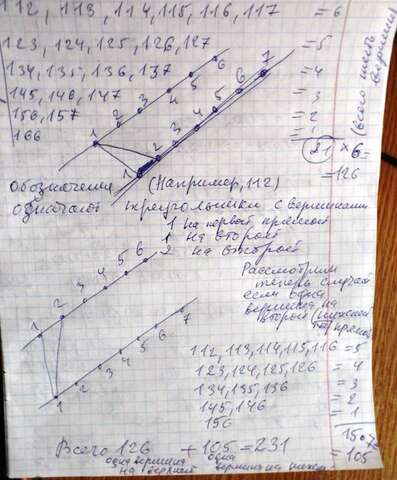 112, 113, 114, 115, 116, 117 = 6
123, 124, 125, 126, 127 = 5
134, 135, 136, 137 = 4
145, 146, 147 = 3
156, 157 = 2
166 = 1
(21) × 6 =
= 126
(всего шесть вершин)
1 2 3 4 5 6
1 2 3 4 5 6 7
обозначения (Например, 112)
означают треугольники с вершинами
1 на первой прямой
1 на второй
2 на второй
1 2 3 4 5 6
1 2 3 4 5 6 7
Рассмотрим
теперь случай
если одна
вершина на
второй (нижней)
прямой
112, 113, 114, 115, 116 = 5
123, 124, 125, 126 = 4
134, 135, 136 = 3
145, 146 = 2
156 = 1
15·7
= 105
Всего 126 + 105 = 231
одна вершина одна
на верхней вершина на нижней